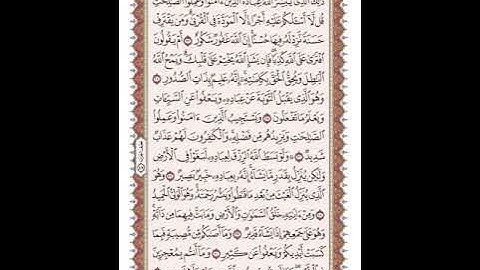 ذَٰلِكَ ٱلَّذِي يُبَشِّرُ ٱللَّهُ عِبَادَهُ ٱلَّذِينَ ءَامَنُوا۟ وَعَمِلُوا۟ ٱلصَّٰلِحَٰتِ
قُل لَّآ أَسْـَٔلُكُمْ عَلَيْهِ أَجْرًا إِلَّا ٱلْمَوَدَّةَ فِى ٱلْقُرْبَىٰ وَمَن يَقْتَرِفْ
حَسَنَةً نَّزِدْ لَهُۥ فِيهَا حُسْنًا إِنَّ ٱللَّهَ غَفُورٌ شَكُورٌ أَمْ يَقُولُونَ
ٱفْتَرَىٰ عَلَى ٱللَّهِ كَذِبًا فَإِن يَشَإِ ٱللَّهُ يَخْتِمْ عَلَىٰ قَلْبِكَ وَيَمْحُ ٱللَّهُ
ٱلْبَٰطِلَ وَيُحِقُّ ٱلْحَقَّ بِكَلِمَٰتِهِۦٓ إِنَّهُۥ عَلِيمٌۢ بِذَاتِ ٱلصُّدُورِ
وَهُوَ ٱلَّذِى يَقْبَلُ ٱلتَّوْبَةَ عَنْ عِبَادِهِۦ وَيَعْفُوا۟ عَنِ ٱلسَّيِّـَٔاتِ
وَيَعْلَمُ مَا تَفْعَلُونَ وَيَسْتَجِيبُ ٱلَّذِينَ ءَامَنُوا۟ وَعَمِلُوا۟
ٱلصَّٰلِحَٰتِ وَيَزِيدُهُم مِّن فَضْلِهِۦ وَٱلْكَٰفِرُونَ لَهُمْ عَذَابٌ
شَدِيدٌ وَلَوْ بَسَطَ ٱللَّهُ ٱلرِّزْقَ لِعِبَادِهِۦ لَبَغَوْا۟ فِى ٱلْأَرْضِ
وَلَٰكِن يُنَزِّلُ بِقَدَرٍ مَّا يَشَآءُ إِنَّهُۥ بِعِبَادِهِۦ خَبِيرٌۢ بَصِيرٌ وَهُوَ
ٱلَّذِى يُنَزِّلُ ٱلْغَيْثَ مِنۢ بَعْدِ مَا قَنَطُوا۟ وَيَنشُرُ رَحْمَتَهُۥ وَهُوَ ٱلْوَلِىُّ ٱلْحَمِيدُ
وَمِنْ ءَايَٰتِهِۦ خَلْقُ ٱلسَّمَٰوَٰتِ وَٱلْأَرْضِ وَمَا بَثَّ فِيهِمَا مِن دَآبَّةٍ
وَهُوَ عَلَىٰ جَمْعِهِمْ إِذَا يَشَآءُ قَدِيرٌ وَمَآ أَصَٰبَكُم مِّن مُّصِيبَةٍ فَبِمَا
كَسَبَتْ أَيْدِيكُمْ وَيَعْفُوا۟ عَن كَثِيرٍ وَمَآ أَنتُم بِمُعْجِزِينَ